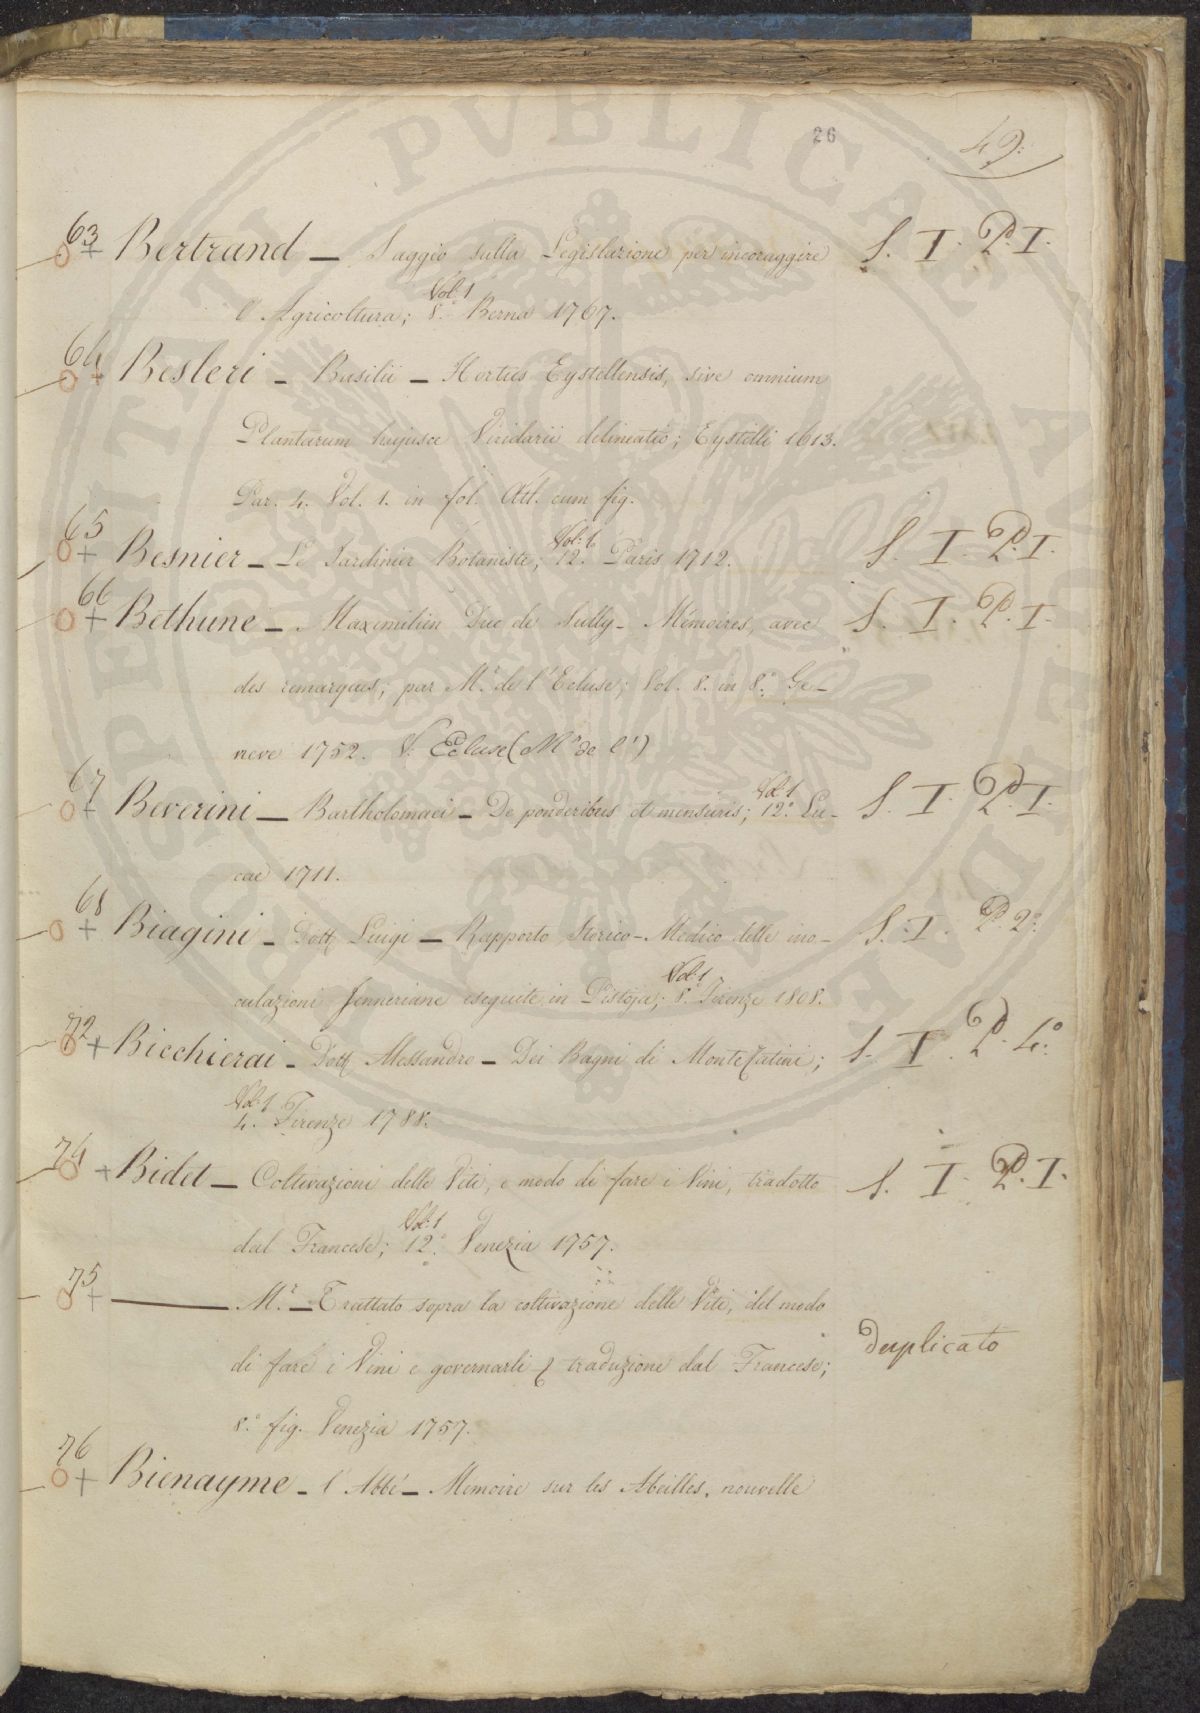 26
49:
63
Bertrand — Saggio sulla Legislazione per incoraggire S. I. P. I.
Vol. 1
l'Agricoltura; 8.° Berna 1767.
64
Besleri — Basilii — Hortus Eystettensis, sive omnium
Plantarum hujusce Viridarii delineatio; Eystetti 1613.
Par. 4. Vol. 1. in fol. Atl. cum fig.
65
Vol. 1
Besnier — Le Jardinier Botaniste; 12. Paris 1712. S. I. P. I.
66
Bethune — Maximilien Duc de Sully — Mémoires, avec S. I. P. I.
des remarques; par M.r de l'Ecluse; Vol. 8. in 8.° Ge-
neve 1752. V. Ecluse (M.r de l')
67
Vol. 1
Beverini — Bartholomaei — De ponderibus et mensuris; 12.° Lu- S. I. P. I.
cae 1711.
68
Biagini — Dott. Luigi — Rapporto Storico-Medico delle ino- S. I. P. 2.°
Vol. 1
culazioni Jenneriane eseguite in Pistoja; 8.° Firenze 1808.
72
Bicchierai — Dott. Alessandro — Dei Bagni di Montecatini; S. I. P. 4.°
Vol. 1
4. Firenze 1788.
74
Bidet — Coltivazioni delle Viti, e modo di fare i Vini, tradotto S. I. P. I.
Vol. 1
dal Francese; 12.° Venezia 1757.
75
— M.r — Trattato sopra la coltivazione delle Viti, del modo
di fare i Vini e governarli; traduzione dal Francese; Duplicato
8.° fig. Venezia 1757.
76
Bienayme — l'Abbé — Mémoire sur les Abeilles, nouvelle
PVBLICAE
PROSPERITATI
AVGENDAE